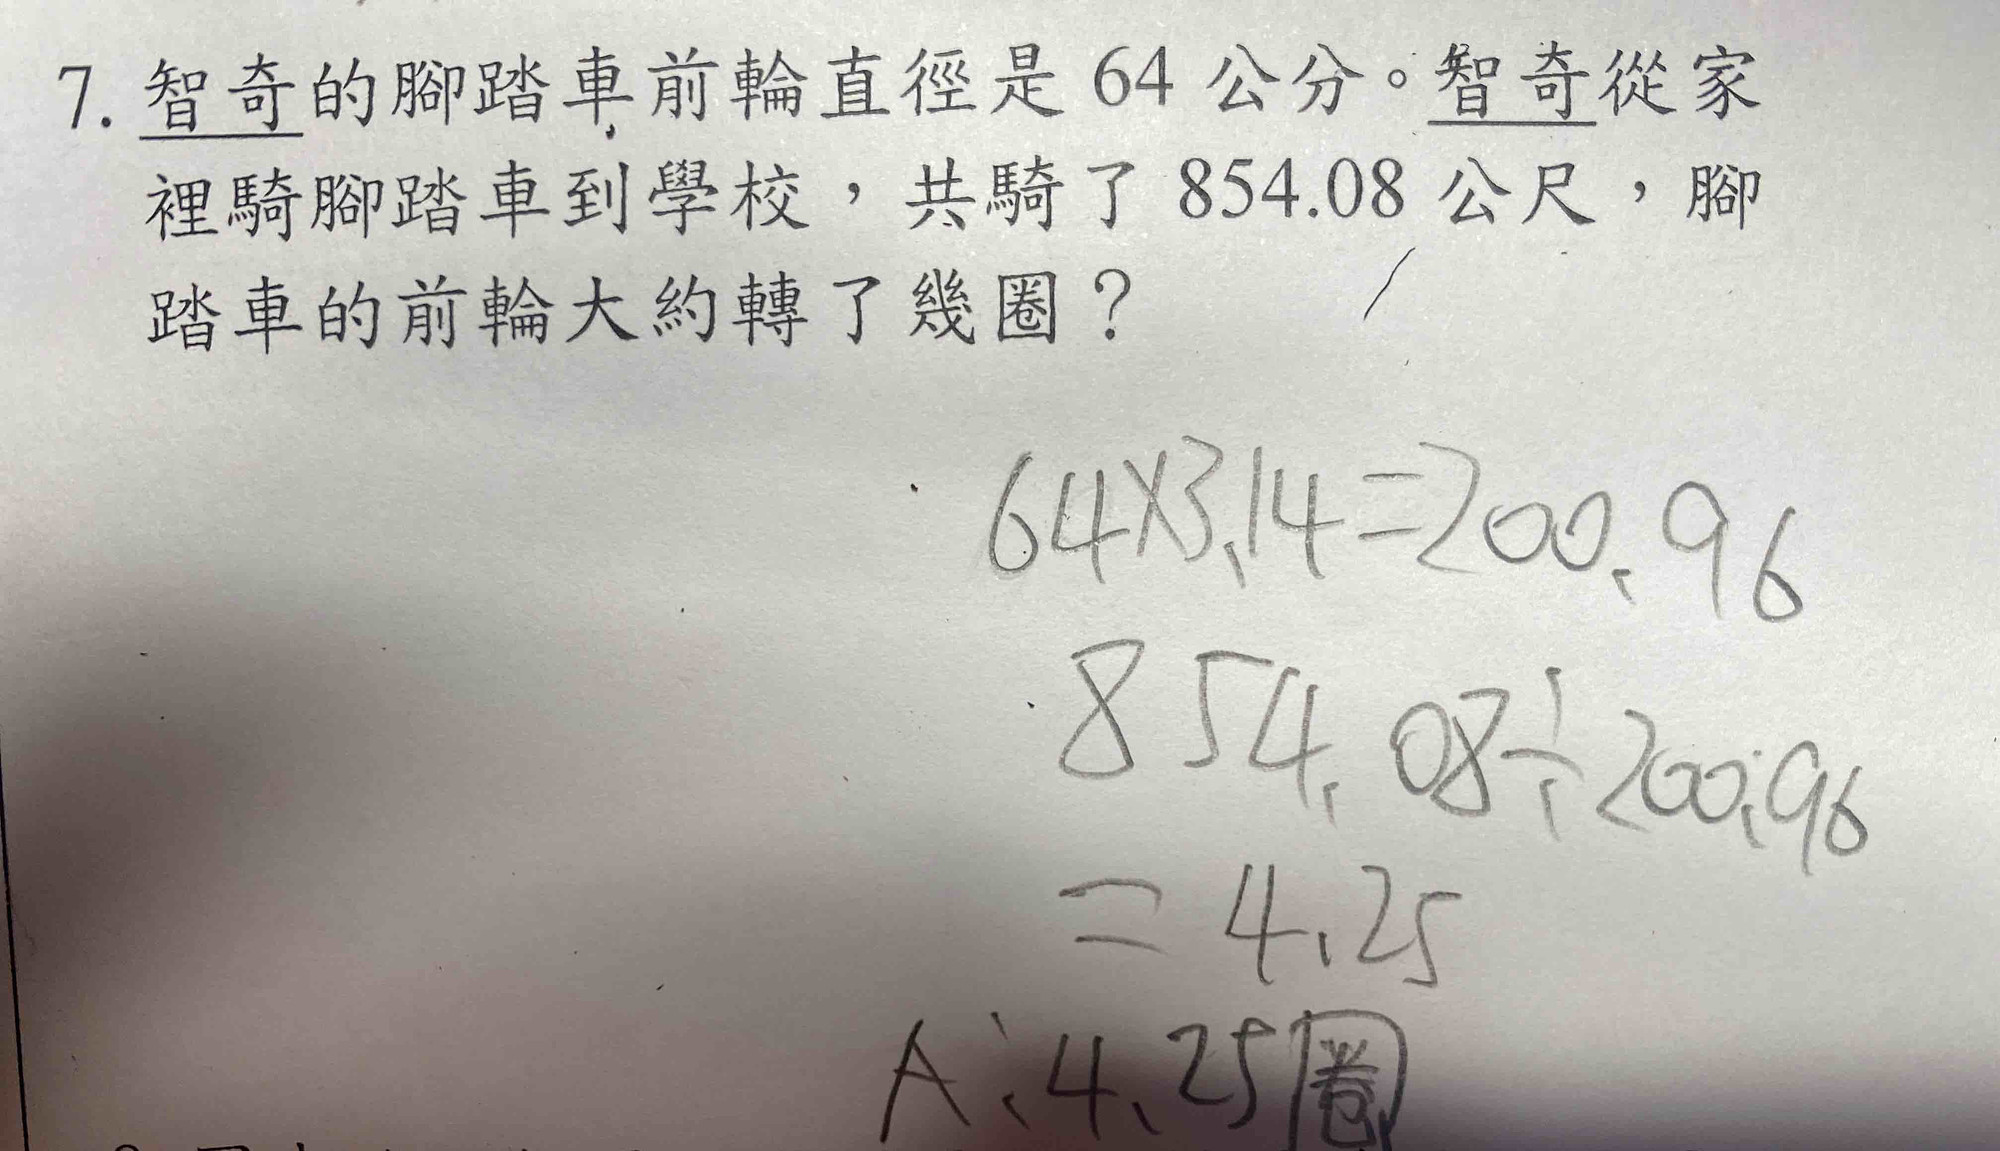 7. 智奇的腳踏車前輪直徑是 64 公分。智奇從家
裡騎腳踏車到學校，共騎了 854.08 公尺，腳
踏車的前輪大約轉了幾圈？
64×3.14=200.96
854.08÷200.96
=4.25
A:4.25圈